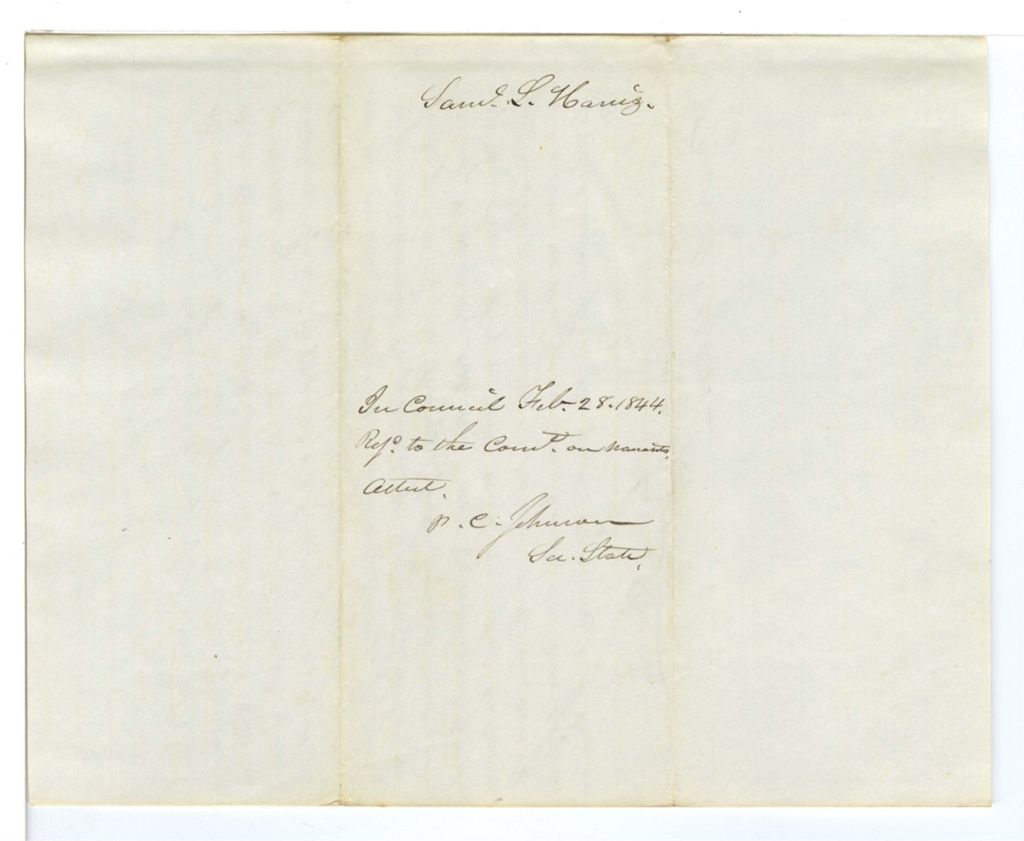 Saml. L. Harris.
In Council Feb. 28. 1844.
Refd. to the Comt. on Warrants,
Attest,
P. C. Johnson
Sec. State,